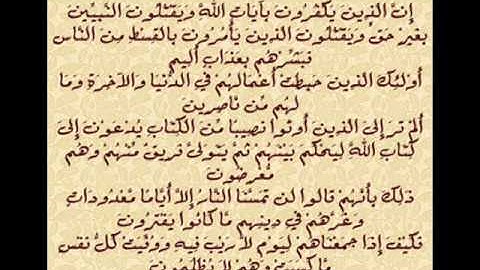 إِنَّ الَّذِينَ يَكْفُرُونَ بِآيَاتِ اللَّهِ وَيَقْتُلُونَ النَّبِيِّينَ
بِغَيْرِ حَقٍّ وَيَقْتُلُونَ الَّذِينَ يَأْمُرُونَ بِالْقِسْطِ مِنَ النَّاسِ
فَبَشِّرْهُم بِعَذَابٍ أَلِيمٍ
أُولَئِكَ الَّذِينَ حَبِطَتْ أَعْمَالُهُمْ فِي الدُّنْيَا وَالْآخِرَةِ وَمَا
لَهُم مِّن نَّاصِرِينَ
أَلَمْ تَرَ إِلَى الَّذِينَ أُوتُوا نَصِيبًا مِّنَ الْكِتَابِ يُدْعَوْنَ إِلَى
كِتَابِ اللَّهِ لِيَحْكُمَ بَيْنَهُمْ ثُمَّ يَتَوَلَّى فَرِيقٌ مِّنْهُمْ وَهُم
مُّعْرِضُونَ
ذَلِكَ بِأَنَّهُمْ قَالُوا لَن تَمَسَّنَا النَّارُ إِلَّا أَيَّامًا مَّعْدُودَاتٍ
وَغَرَّهُمْ فِي دِينِهِم مَّا كَانُوا يَفْتَرُونَ
فَكَيْفَ إِذَا جَمَعْنَاهُمْ لِيَوْمٍ لَّا رَيْبَ فِيهِ وَوُفِّيَتْ كُلُّ نَفْسٍ
مَّا كَسَبَتْ وَهُمْ لَا يُظْلَمُونَ